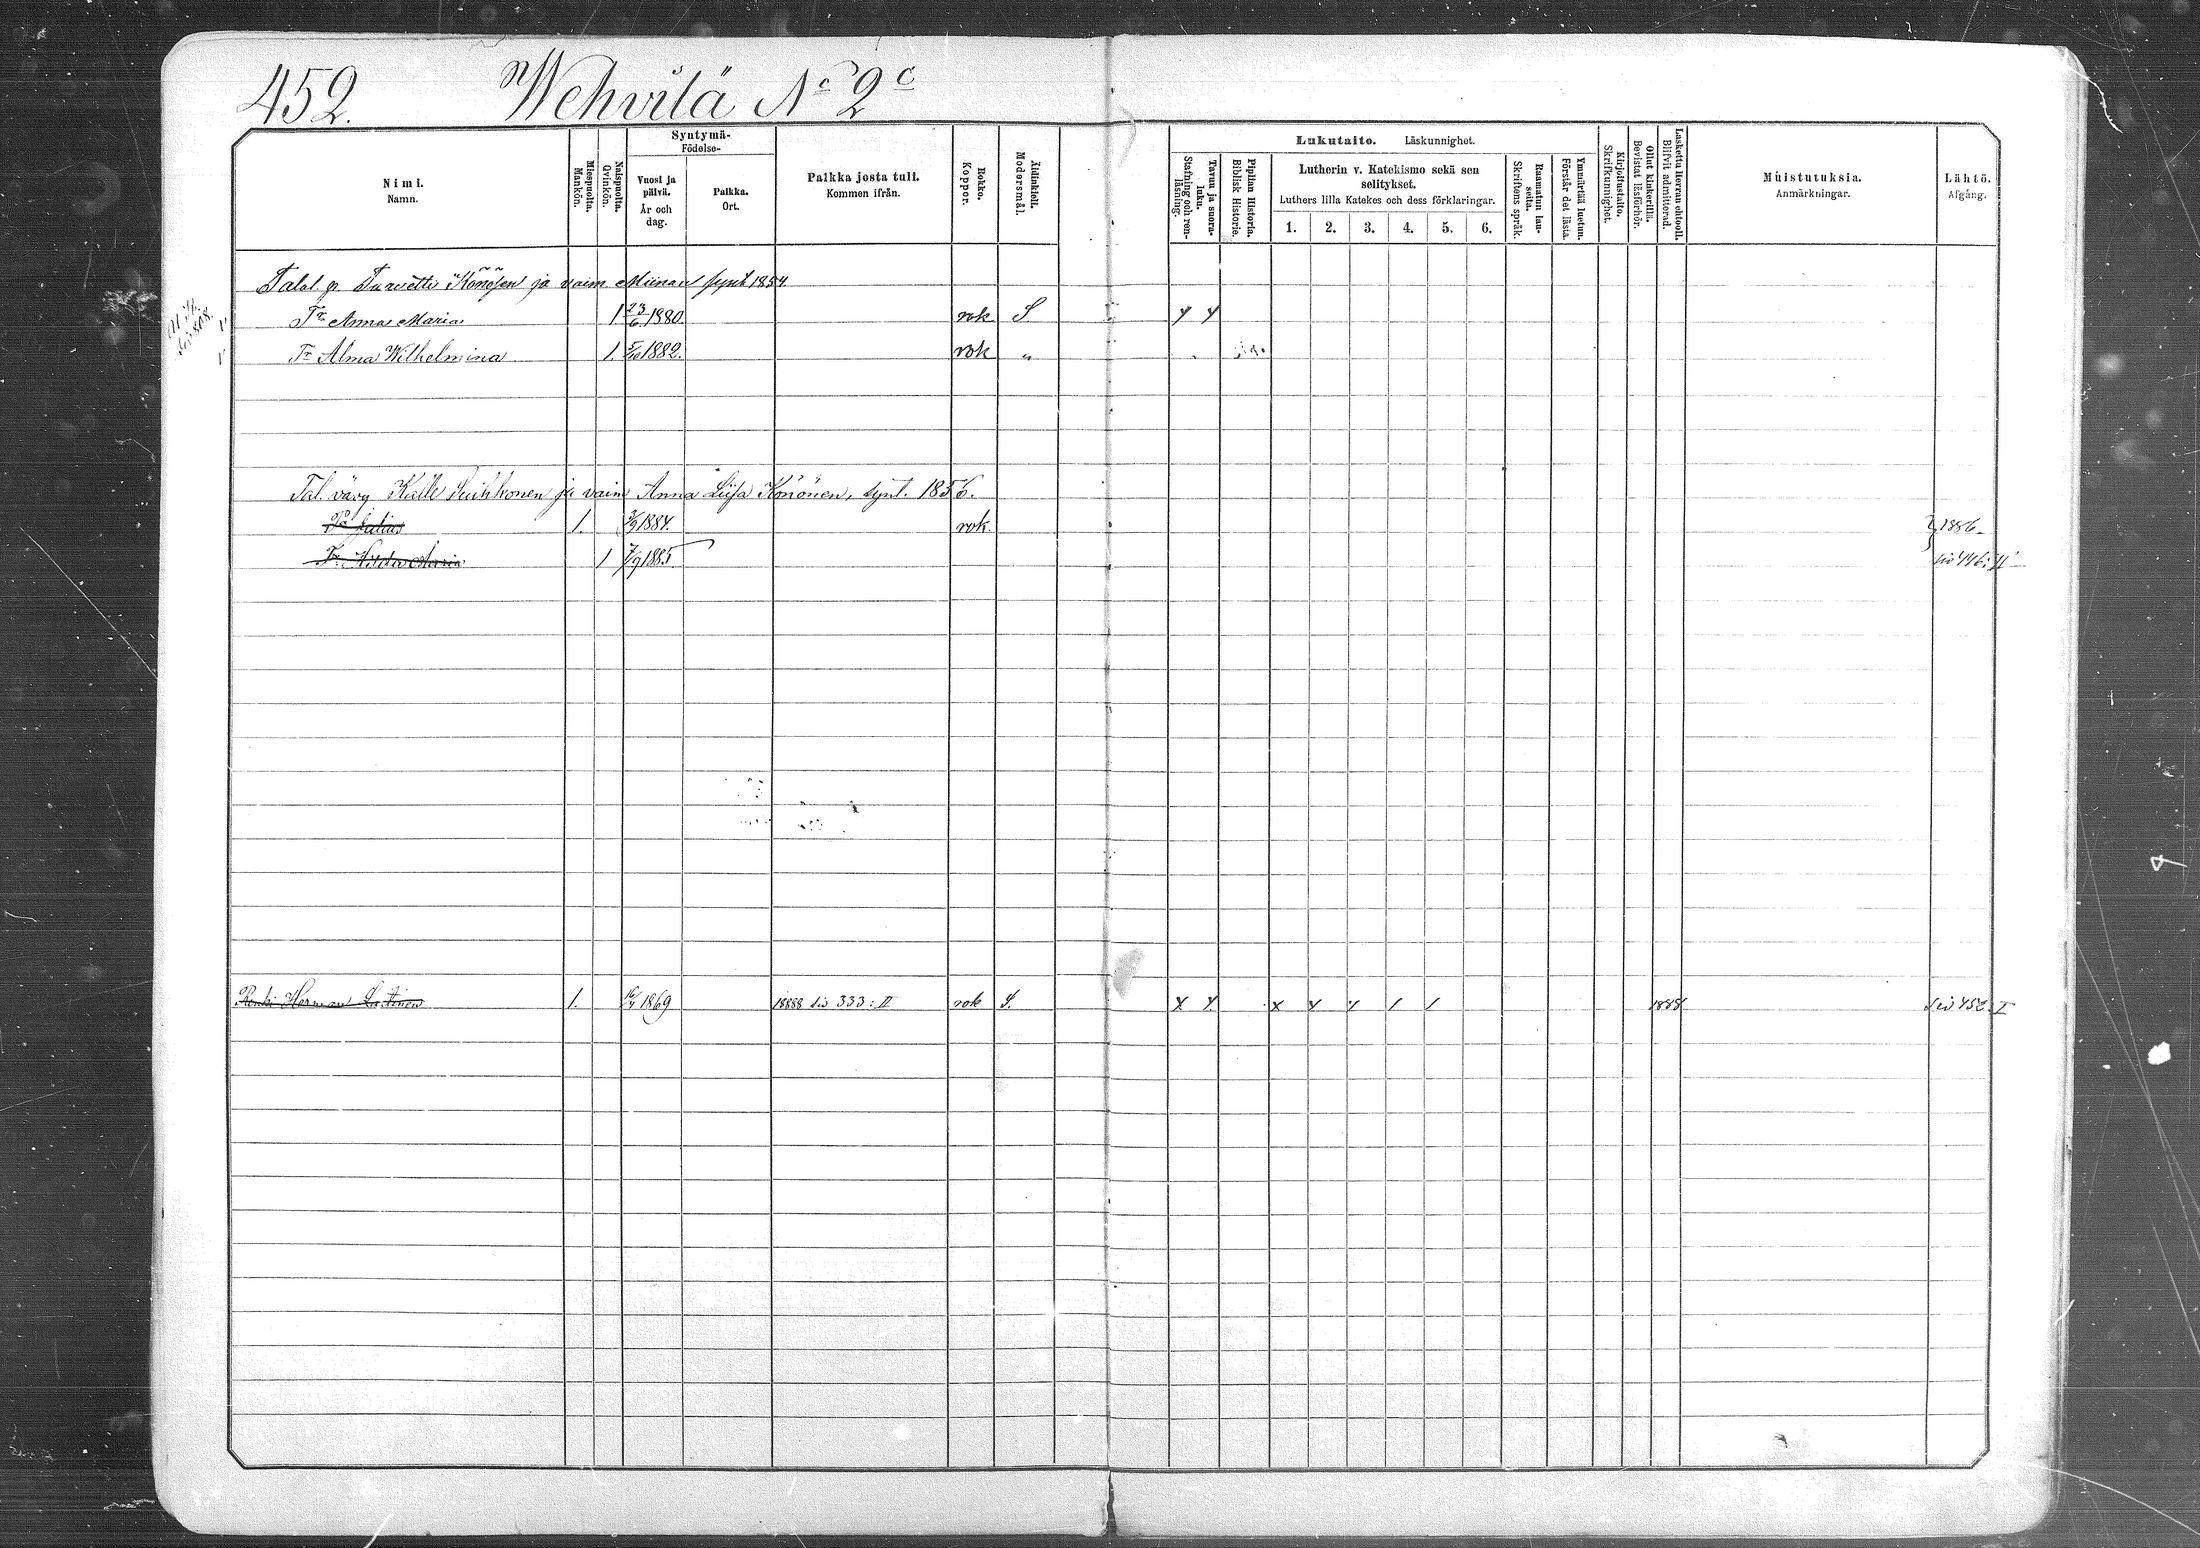 452. Wehvilä No 2 c
Nimi.
Namn.
Miespuolta.
Mankön.
Naispuolta.
Qvinkön.
Syntymä-
Födelse-
Vuosi ja päivä.
År och dag.
Paikka.
Ort.
Paikka josta tuli.
Kommen ifrån.
Rokko.
Koppor.
Äidinkieli.
Modersmål.
Lukutaito. Läskunnighet.
Tavuu ja suora-luku.
Stafning och ren-läsning.
Piplian Historia.
Biblisk Historie.
Lutherin v. Katekismo sekä sen selitykset.
Luthers lilla Katekes och dess förklaringar.
1. 2. 3. 4. 5. 6.
Raamatun lau-seita.
Skriftens språk.
Ymmärtää luetun.
Förstår det lästa.
Kirjoitustaito.
Skrifkunnighet.
Ollut kinkerillä.
Bevistat läsförhör.
Laskettu Herran ehtooll.
Blifvit admitterad.
Muistutuksia.
Anmärkningar.
Lähtö.
Afgång.
Talol. p. Taavetti Könösen ja vaim. Miinan synt 1854
Tr Anna Maria 1 23/6 1880. rok S
Tr Alma Wilhelmina 1. 5/10 1882. rok "
Tal. vävy Kalle Suihkonen ja vaim Anna Liisa Könönen, synt. 1856.
Pa Julius 1. 3/9 1884. rok. 1886
Tr. Hilda Maria 1 7/9 1885 siv 446: II
Renki Herman Laitinen 1. 16/4 1869 18888 siv 333: II rok S. x x x x x 1 1 1888 siv 452: I